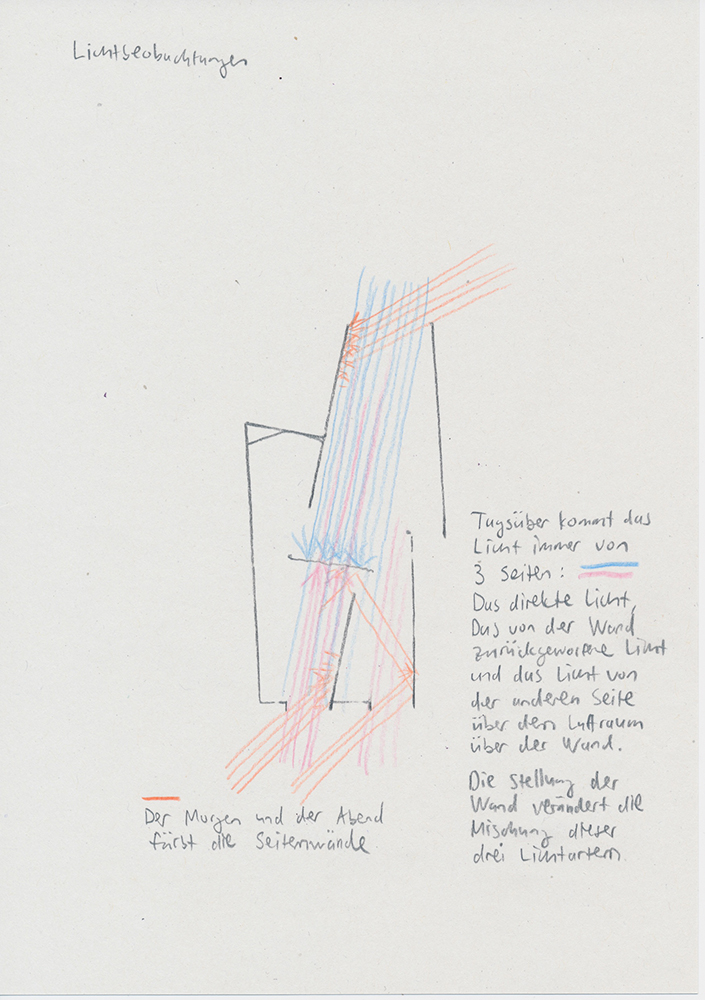 Lichtbeobachtungen
Tagsüber kommt das
Licht immer von
3 Seiten:
Das direkte Licht,
Das von der Wand
zurückgeworfene Licht
und das Licht von
der anderen Seite
über dem Luftraum
über der Wand.
Die Stellung der
Wand verändert die
Mischung dieser
drei Lichtarten.
Der Morgen und der Abend
färbt die Seitenwände